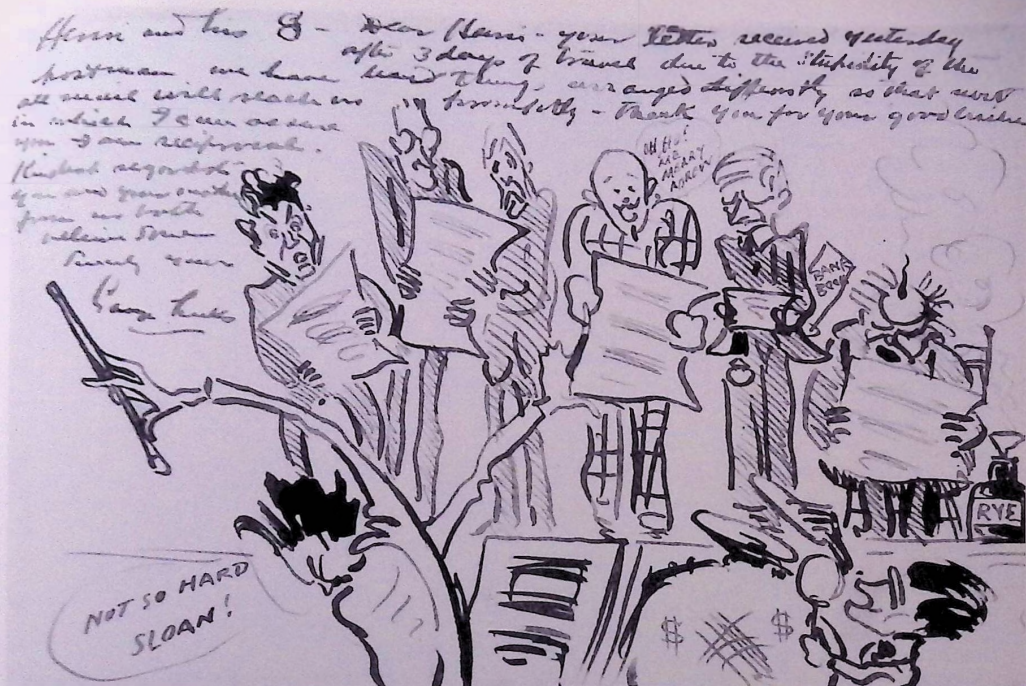 Henri and his 8 - Dear Henri - your letter received yesterday
after 3 days of travel due to the stupidity of the
postman. we have had things arranged differently so that
all mail will reach us promptly - Thank you for your good wishes
in which I can assure
you I am reciprocal.
Kindest regards to
you and your mother
from us both
believe
yours
George Luks
ME
MERRY
BANK
BOOK
RYE
NOT SO HARD
SLOAN!
$ $